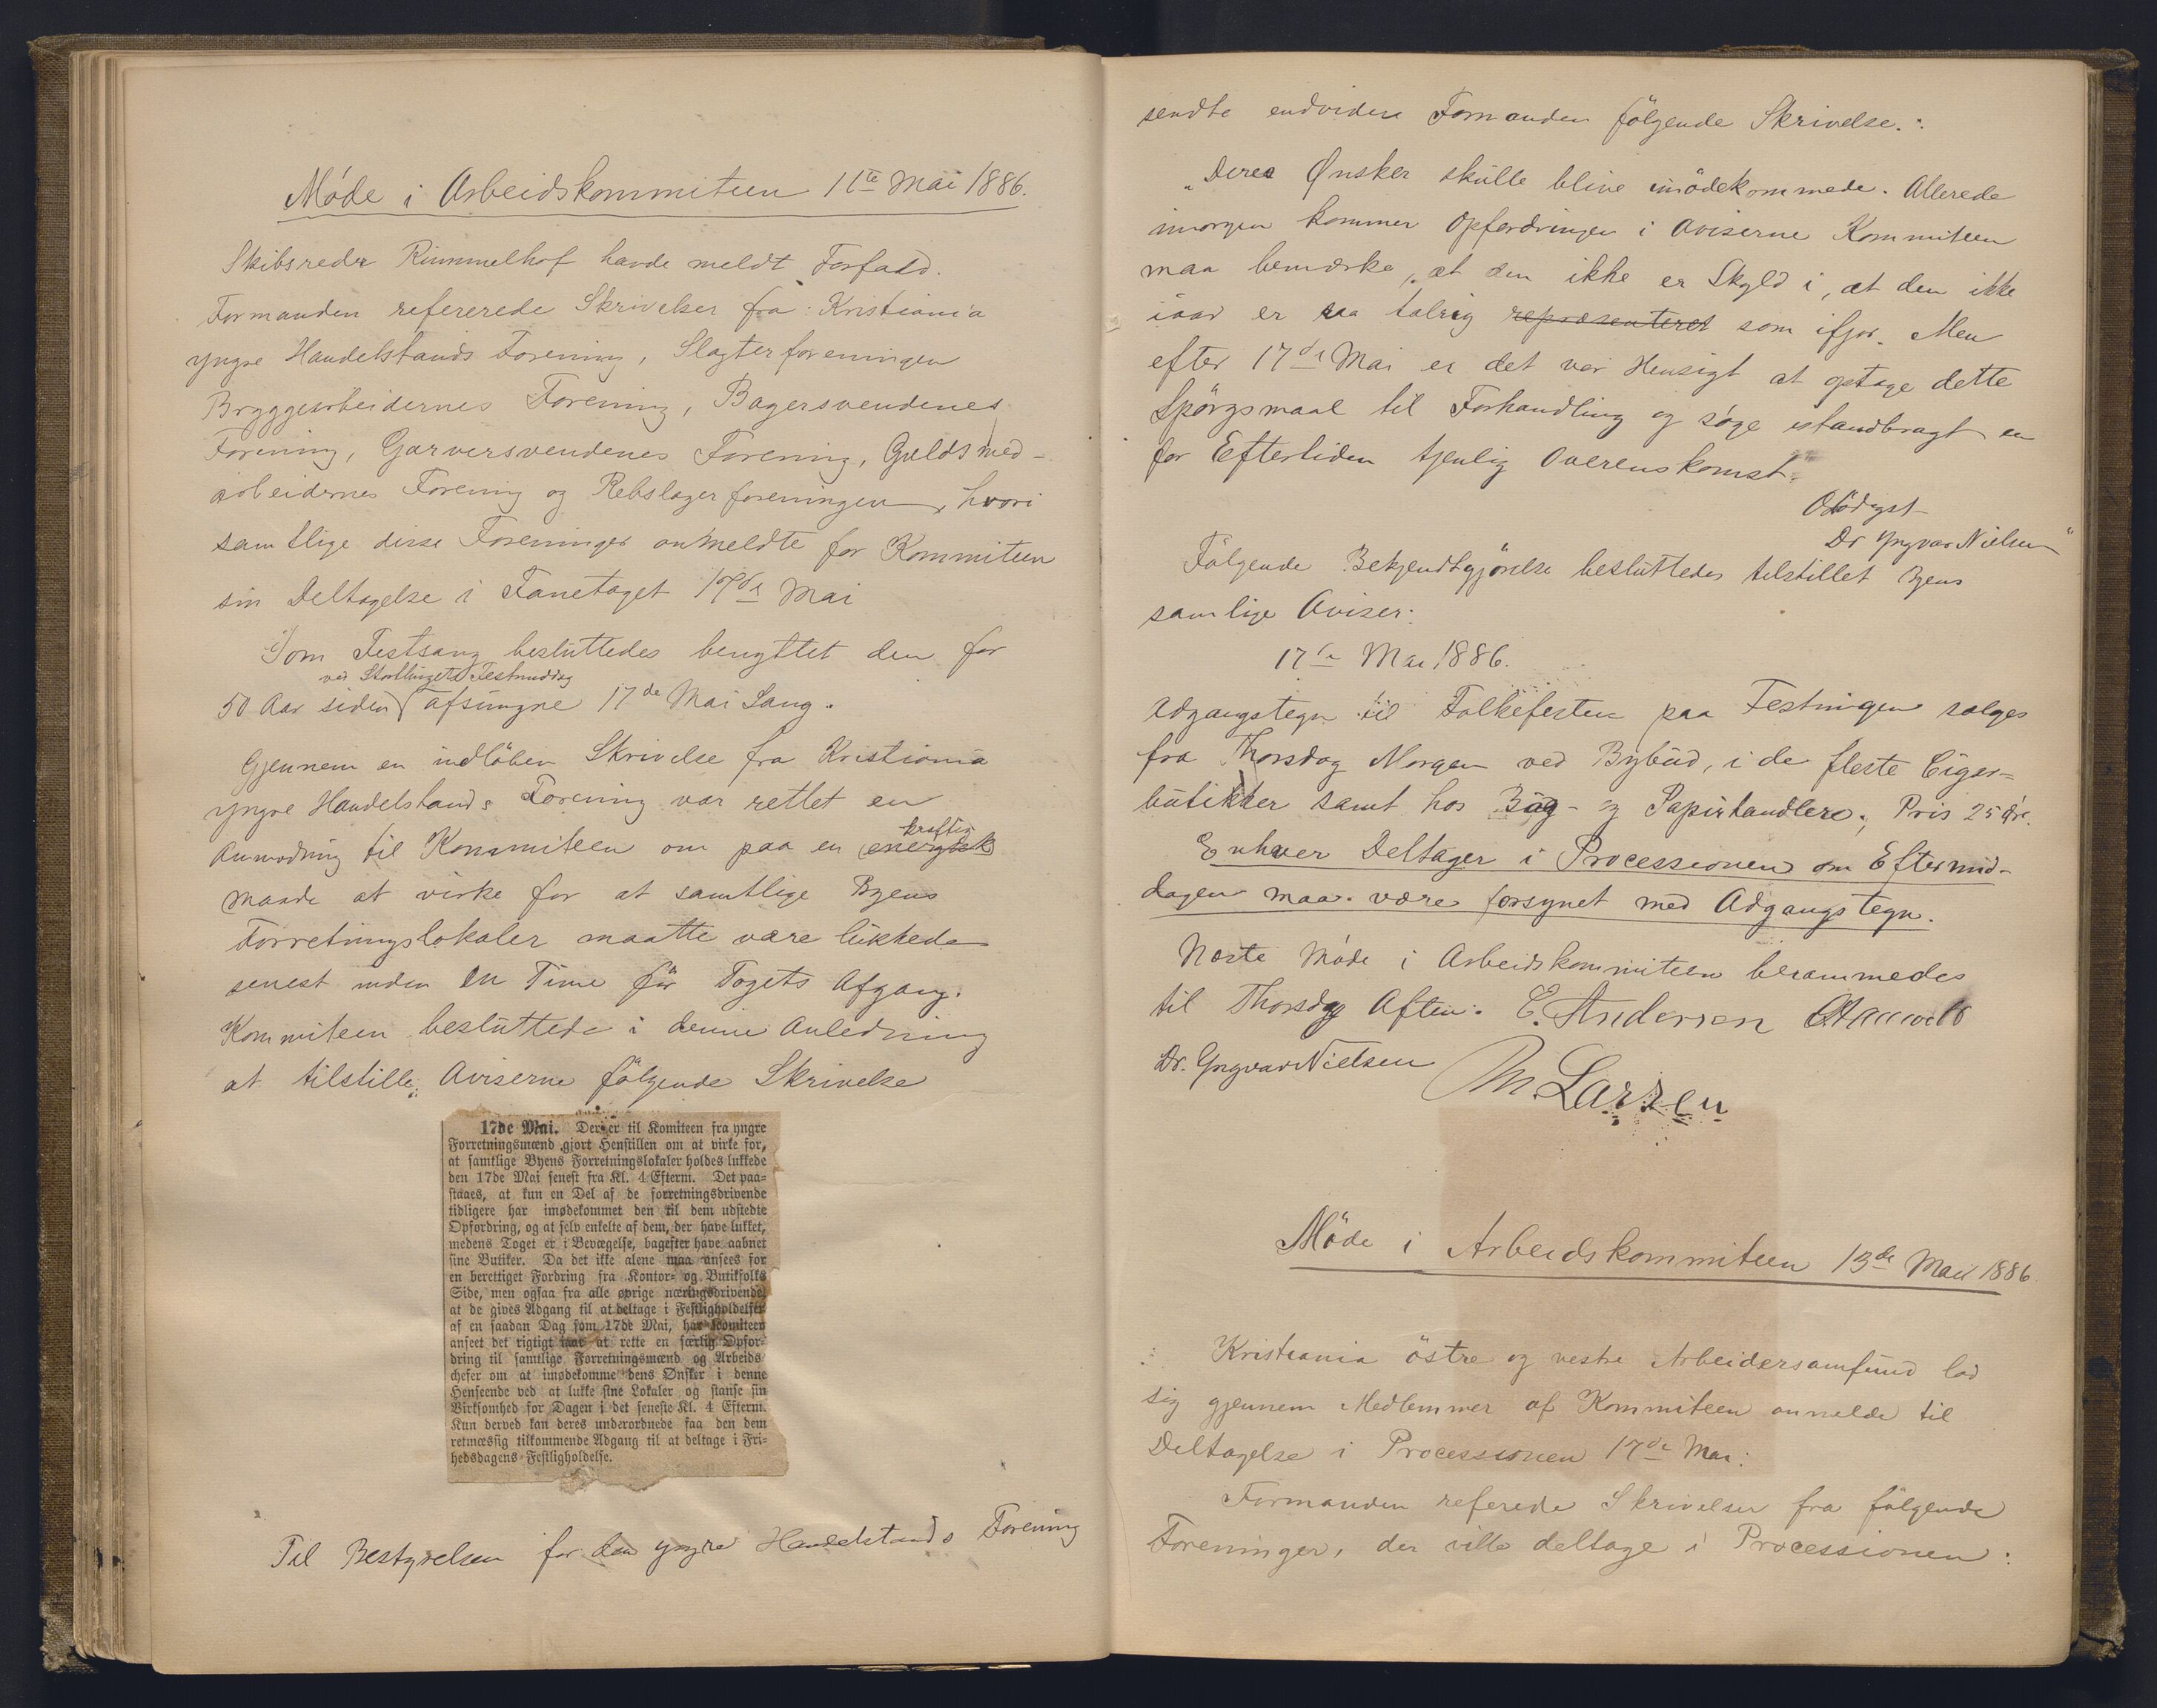 Møde i Arbeidskommiteen 11te Mai 1886.
Skibsreder Rimmelhof havde meldt Forfald.
Formanden refererede Skrivelser fra: Kristiania
yngre Handelstands Forening, Slagterforeningen
Bryggearbeidernes Forening, Bagersvendenes
Forening, Garversvendenes Forening, Guldsmed-
arbeidernes Forening og Rebslagerforeningen, hvori
samtlige disse Foreninger anmeldte for Kommiteen
sin Deltagelse i Fanetoget 17de Mai
Som Festsang besluttedes benyttet den for
ved Storthingets Festmiddag
50 Aar siden afsungne 17de Mai Sang.
Gjennem en indløben Skrivelse fra Kristiania
yngre Handelstands Forening var rettet en
kraftig
Anmodning til Kommiteen om paa en (energisk)
Maade at virke for at samtlige Byens
Forretningslokaler maatte være lukkede
senest inden en Time før Togets Afgang.
Kommiteen besluttede i denne Anledning
at tilstille Aviserne følgende Skrivelse
17de Mai. Der er til Komiteen fra yngre
Forretningsmænd gjort Henstillen om at virke for,
at samtlige Byens Forretningslokaler holdes lukkede
den 17de Mai senest fra Kl. 4 Efterm. Det paa-
staaes, at kun en Del af de forretningsdrivende
tidligere har imødekommet den til dem udstedte
Opfordring, og at selv enkelte af dem, der have lukket,
medens Toget er i Bevægelse, bagefter have aabnet
sine Butiker. Da det ikke alene maa ansees for
en berettiget Fordring fra Kontor- og Butikfolks
Side, men ogsaa fra alle øvrige næringsdrivende,
at de gives Adgang til at deltage i Festligholdelsen
af en saadan Dag som 17de Mai, har Komiteen
anseet det rigtigt at rette en særlig Opfor-
dring til samtlige Forretningsmænd og Arbeids-
chefer om at imødekomme dens Ønsker i denne
Henseende ved at lukke sine Lokaler og stanse sin
Virksomhed for Dagen i det seneste Kl. 4 Efterm.
Kun derved kan deres underordnede faa den dem
retmæssig tilkommende Adgang til at deltage i Fri-
hedsdagens Festligholdelse.
Til Bestyrelsen for den yngre Handelstands Forening
sendte endvidere Formanden følgende Skrivelse:
"Deres Ønsker skulle blive imødekommede. Allerede
imorgen kommer Opfordringen i Aviserne Kommiteen
maa bemærke, at den ikke er Skyld i, at den ikke
iaar er saa talrig repræsenteret som ifjor. Men
efter 17de Mai er det vor Hensigt at optage dette
Spørgsmaal til Forhandling og søge istandbragt en
for Eftertiden tjenlig Overenskomst.
Ødst
Dr Yngvar Nielsen"
Følgende Bekjendtgjørelse besluttedes tilstillet Byens
samlige Aviser:
17de Mai 1886.
Adgangstegn til Folkefesten paa Festningen sælges
fra Thorsdag Morgen ved Bybud, i de fleste Cigar-
butikker samt hos Bog- og Papirhandlere; Pris 25 Øre.
Enhver Deltager i Processionen om Eftermid-
dagen maa være forsynet med Adgangstegn.
Næste Møde i Arbeidskommiteen berammedes
til Thorsdag Aften. C. Andersen
Dr. Yngvar Nielsen
M. Larsen
Møde i Arbeidskommiteen 13de Mai 1886
Kristiania östre og vestre Arbeidersamfund lod
sig gjennem Medlemmer af Kommiteen anmelde til
Deltagelse i Processionen 17de Mai.
Formanden referede Skrivelser fra følgende
Foreninger, der ville deltage i Processionen: